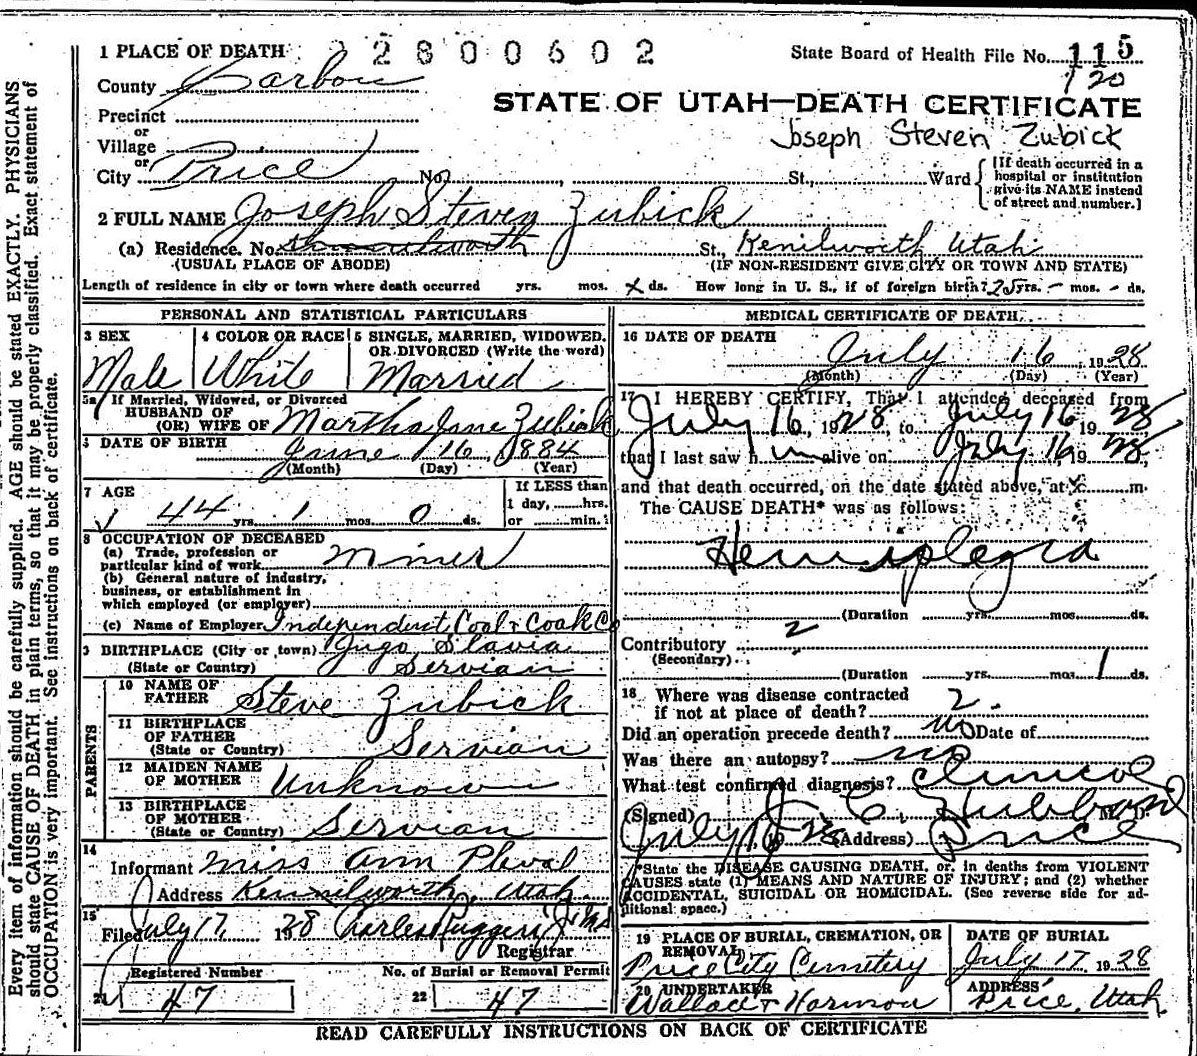 1 PLACE OF DEATH 2 2 8 0 0 6 0 2 State Board of Health File No. 115
120
County Carbon
STATE OF UTAH—DEATH CERTIFICATE
Precinct
or
Joseph Steven Zubick
Village
or
City Price No. , St., Ward {[If death occurred in a hospital or institution give its NAME instead of street and number.]
2 FULL NAME Joseph Steven Zubick
(a) Residence. No. St., Kenilworth Utah
(USUAL PLACE OF ABODE) (IF NON-RESIDENT GIVE CITY OR TOWN AND STATE)
Length of residence in city or town where death occurred yrs. mos. x ds. How long in U. S., if of foreign birth? 25 yrs. - mos. - ds.
PERSONAL AND STATISTICAL PARTICULARS
3 SEX 4 COLOR OR RACE 5 SINGLE, MARRIED, WIDOWED,
OR DIVORCED (Write the word)
Male White Married
5a If Married, Widowed, or Divorced
HUSBAND OF
(OR) WIFE OF Martha Jane Zubick
6 DATE OF BIRTH June 16, 1884
(Month) (Day) (Year)
7 AGE If LESS than
1 day, hrs.
44 yrs. 1 mos. 0 ds. or min.
8 OCCUPATION OF DECEASED
(a) Trade, profession or
particular kind of work Miner
(b) General nature of industry,
business, or establishment in
which employed (or employer)
(c) Name of Employer Independent Coal & Coak Co
9 BIRTHPLACE (City or town) Jugo Slavia
(State or Country) Servian
PARENTS
10 NAME OF
FATHER Steve Zubick
11 BIRTHPLACE
OF FATHER
(State or Country) Servian
12 MAIDEN NAME
OF MOTHER Unknown
13 BIRTHPLACE
OF MOTHER
(State or Country) Servian
14
Informant Miss Ann
Address Kenilworth, Utah
15
Filed July 17 1928 Charles Ruggeri
Registrar
Registered Number No. of Burial or Removal Permit
21 47 22 47
MEDICAL CERTIFICATE OF DEATH
16 DATE OF DEATH
July 16, 1928
(Month) (Day) (Year)
17 I HEREBY CERTIFY, That I attended deceased from
July 16, 1928, to July 16 1928
that I last saw h im alive on July 16, 1928
and that death occurred, on the date stated above, at m.
The CAUSE DEATH* was as follows:
Hemiplegia
(Duration yrs. mos. ds.
Contributory 2
(Secondary)
(Duration yrs. mos. 1 ds.
18 Where was disease contracted
if not at place of death? 2.
Did an operation precede death? no Date of
Was there an autopsy? no
What test confirmed diagnosis? Clinical
(Signed) J. C. Hubbard M. D.
July 28 (Address) Price
*State the DISEASE CAUSING DEATH, or, in deaths from VIOLENT
CAUSES state (1) MEANS AND NATURE OF INJURY; and (2) whether
ACCIDENTAL, SUICIDAL OR HOMICIDAL. (See reverse side for ad-
ditional space.)
19 PLACE OF BURIAL, CREMATION, OR DATE OF BURIAL
REMOVAL
Price City Cemetery July 17 1928
20 UNDERTAKER ADDRESS
Wallace & Harmon Price, Utah
READ CAREFULLY INSTRUCTIONS ON BACK OF CERTIFICATE
Every item of information should be carefully supplied. AGE should be stated EXACTLY. PHYSICIANS
should state CAUSE OF DEATH in plain terms, so that it may be properly classified. Exact statement of
OCCUPATION is very important. See instructions on back of certificate.